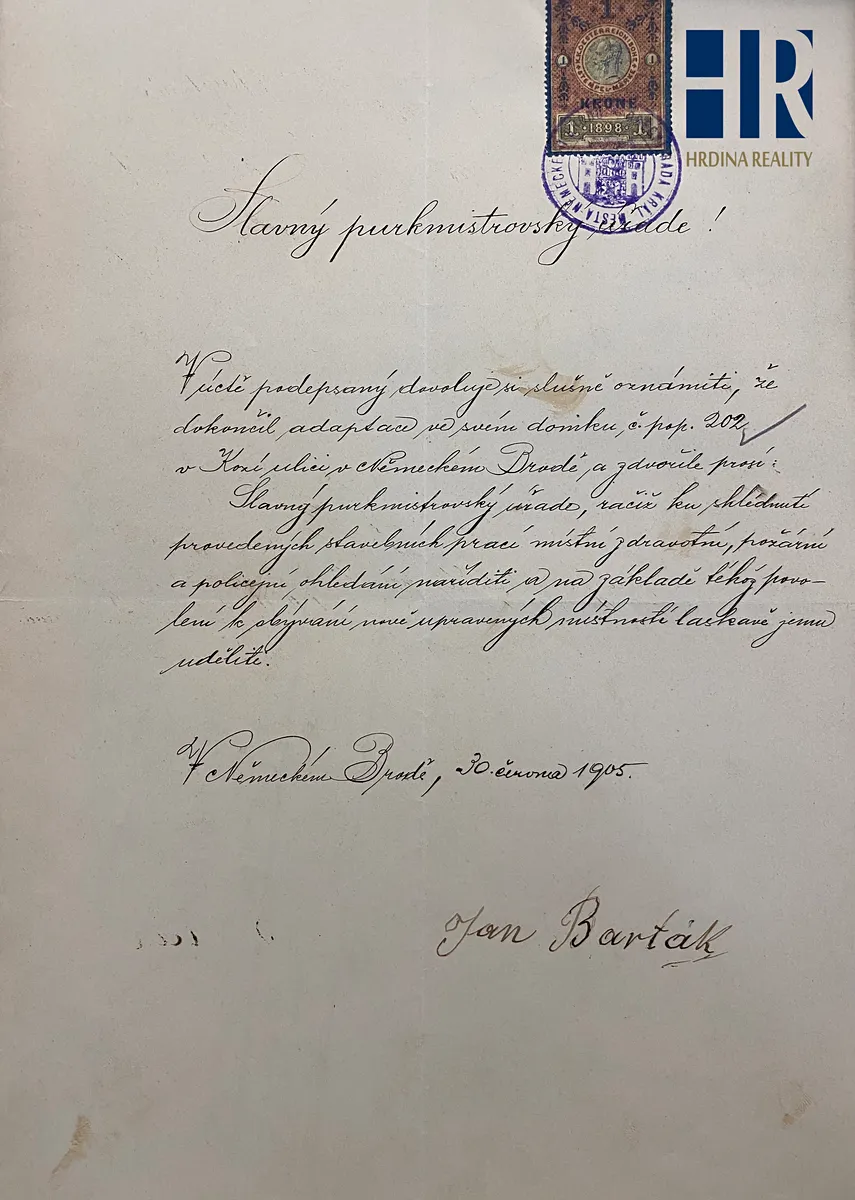 1
K.K. OESTERREICHISCHE
STEMPEL-MARKE
1 1
KRONE
1 · 1898 · 1
RADA KRÁL. MĚSTA NĚMECKÉ
HR
HRDINA REALITY
Slavný purkmistrovský úřade !
V úctě podepsaný dovoluje si slušně oznámiti, že
dokončil adaptace ve svém domku, č. pop. 202
v Kozí ulici v Německém Brodě, a zdvořile prosí:
Slavný purkmistrovský úřade, račiž ku shlédnutí
provedených stavebních prací místní zdravotní, požární
a policejní ohledání naříditi a na základě téhož povo-
lení k obývání nově upravených místností laskavě jemu
uděliti.
V Německém Brodě, 30. června 1905.
Jan Barták